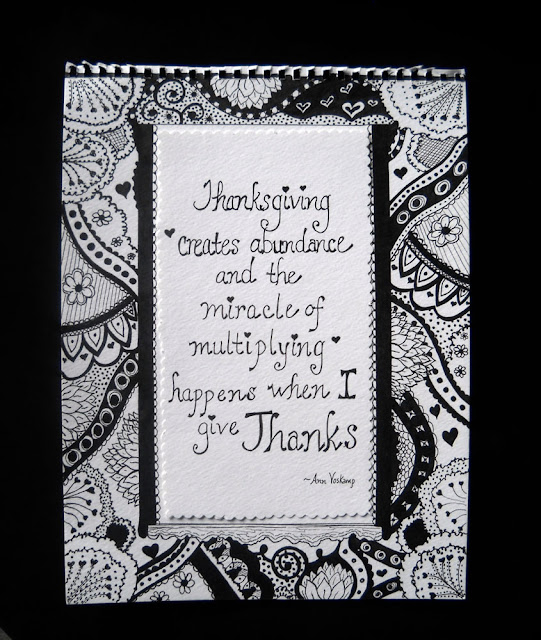 Thanksgiving
creates abundance
and the
miracle of
multiplying
happens when I
give Thanks
~Ann Voskamp